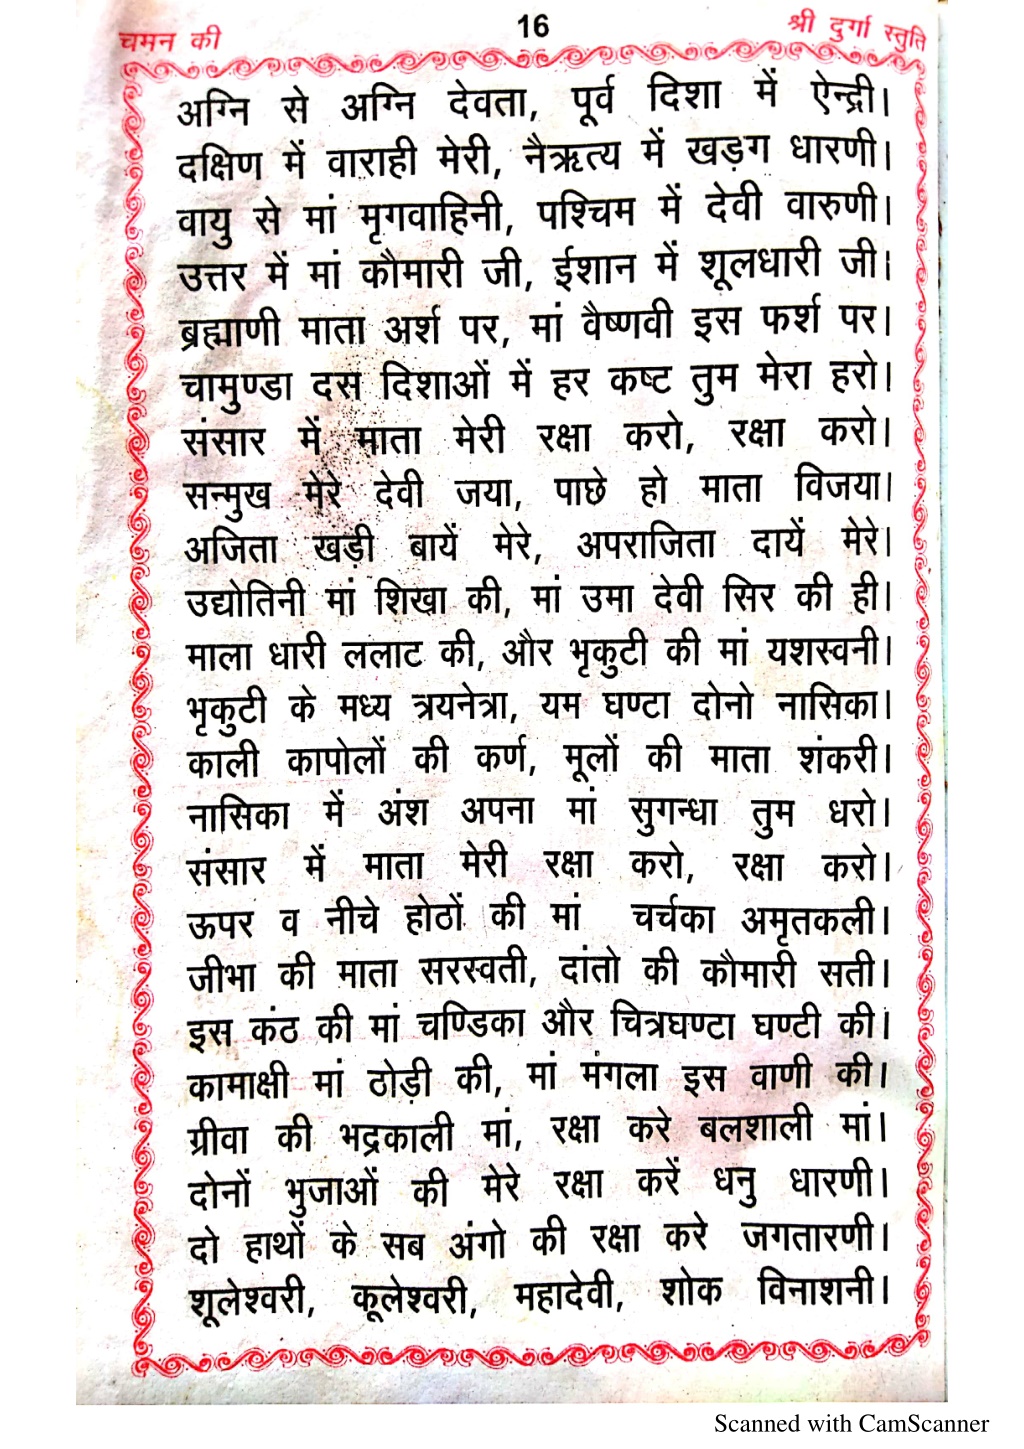 चमन की
16
श्री दुर्गा स्तुति
अग्नि से अग्नि देवता, पूर्व दिशा में ऐन्द्री।
दक्षिण में वाराही मेरी, नैऋत्य में खड़ग धारणी।
वायु से मां मृगवाहिनी, पश्चिम में देवी वारुणी।
उत्तर में मां कौमारी जी, ईशान में शूलधारी जी।
ब्रह्माणी माता अर्श पर, मां वैष्णवी इस फर्श पर।
चामुण्डा दस दिशाओं में हर कष्ट तुम मेरा हरो।
संसार में माता मेरी रक्षा करो, रक्षा करो।
सन्मुख मेरे देवी जया, पाछे हो माता विजया।
अजिता खड़ी बायें मेरे, अपराजिता दायें मेरे।
उद्योतिनी मां शिखा की, मां उमा देवी सिर की ही।
माला धारी ललाट की, और भृकुटी की मां यशस्वनी।
भृकुटी के मध्य त्रयनेत्रा, यम घण्टा दोनो नासिका।
काली कापोलों की कर्ण, मूलों की माता शंकरी।
नासिका में अंश अपना मां सुगन्धा तुम धरो।
संसार में माता मेरी रक्षा करो, रक्षा करो।
ऊपर व नीचे होठों की मां चर्चका अमृतकली।
जीभा की माता सरस्वती, दांतो की कौमारी सती।
इस कंठ की मां चण्डिका और चित्रघण्टा घण्टी की।
कामाक्षी मां ठोड़ी की, मां मंगला इस वाणी की।
ग्रीवा की भद्रकाली मां, रक्षा करे बलशाली मां।
दोनों भुजाओं की मेरे रक्षा करें धनु धारणी।
दो हाथों के सब अंगो की रक्षा करे जगतारणी।
शूलेश्वरी, कूलेश्वरी, महादेवी, शोक विनाशनी।
Scanned with CamScanner